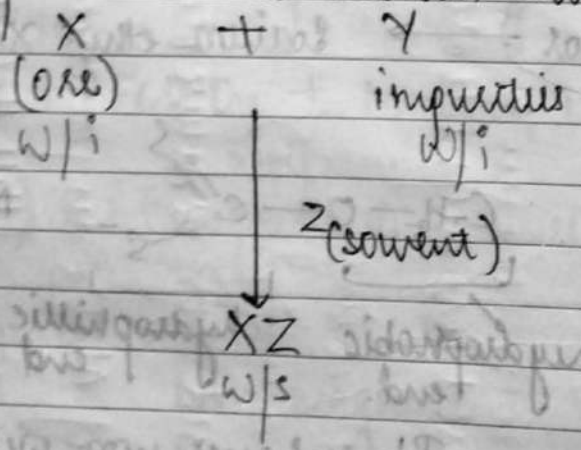 X + Y
(ore) impurities
W/i W/i
Z (solvent)
XZ
W/s